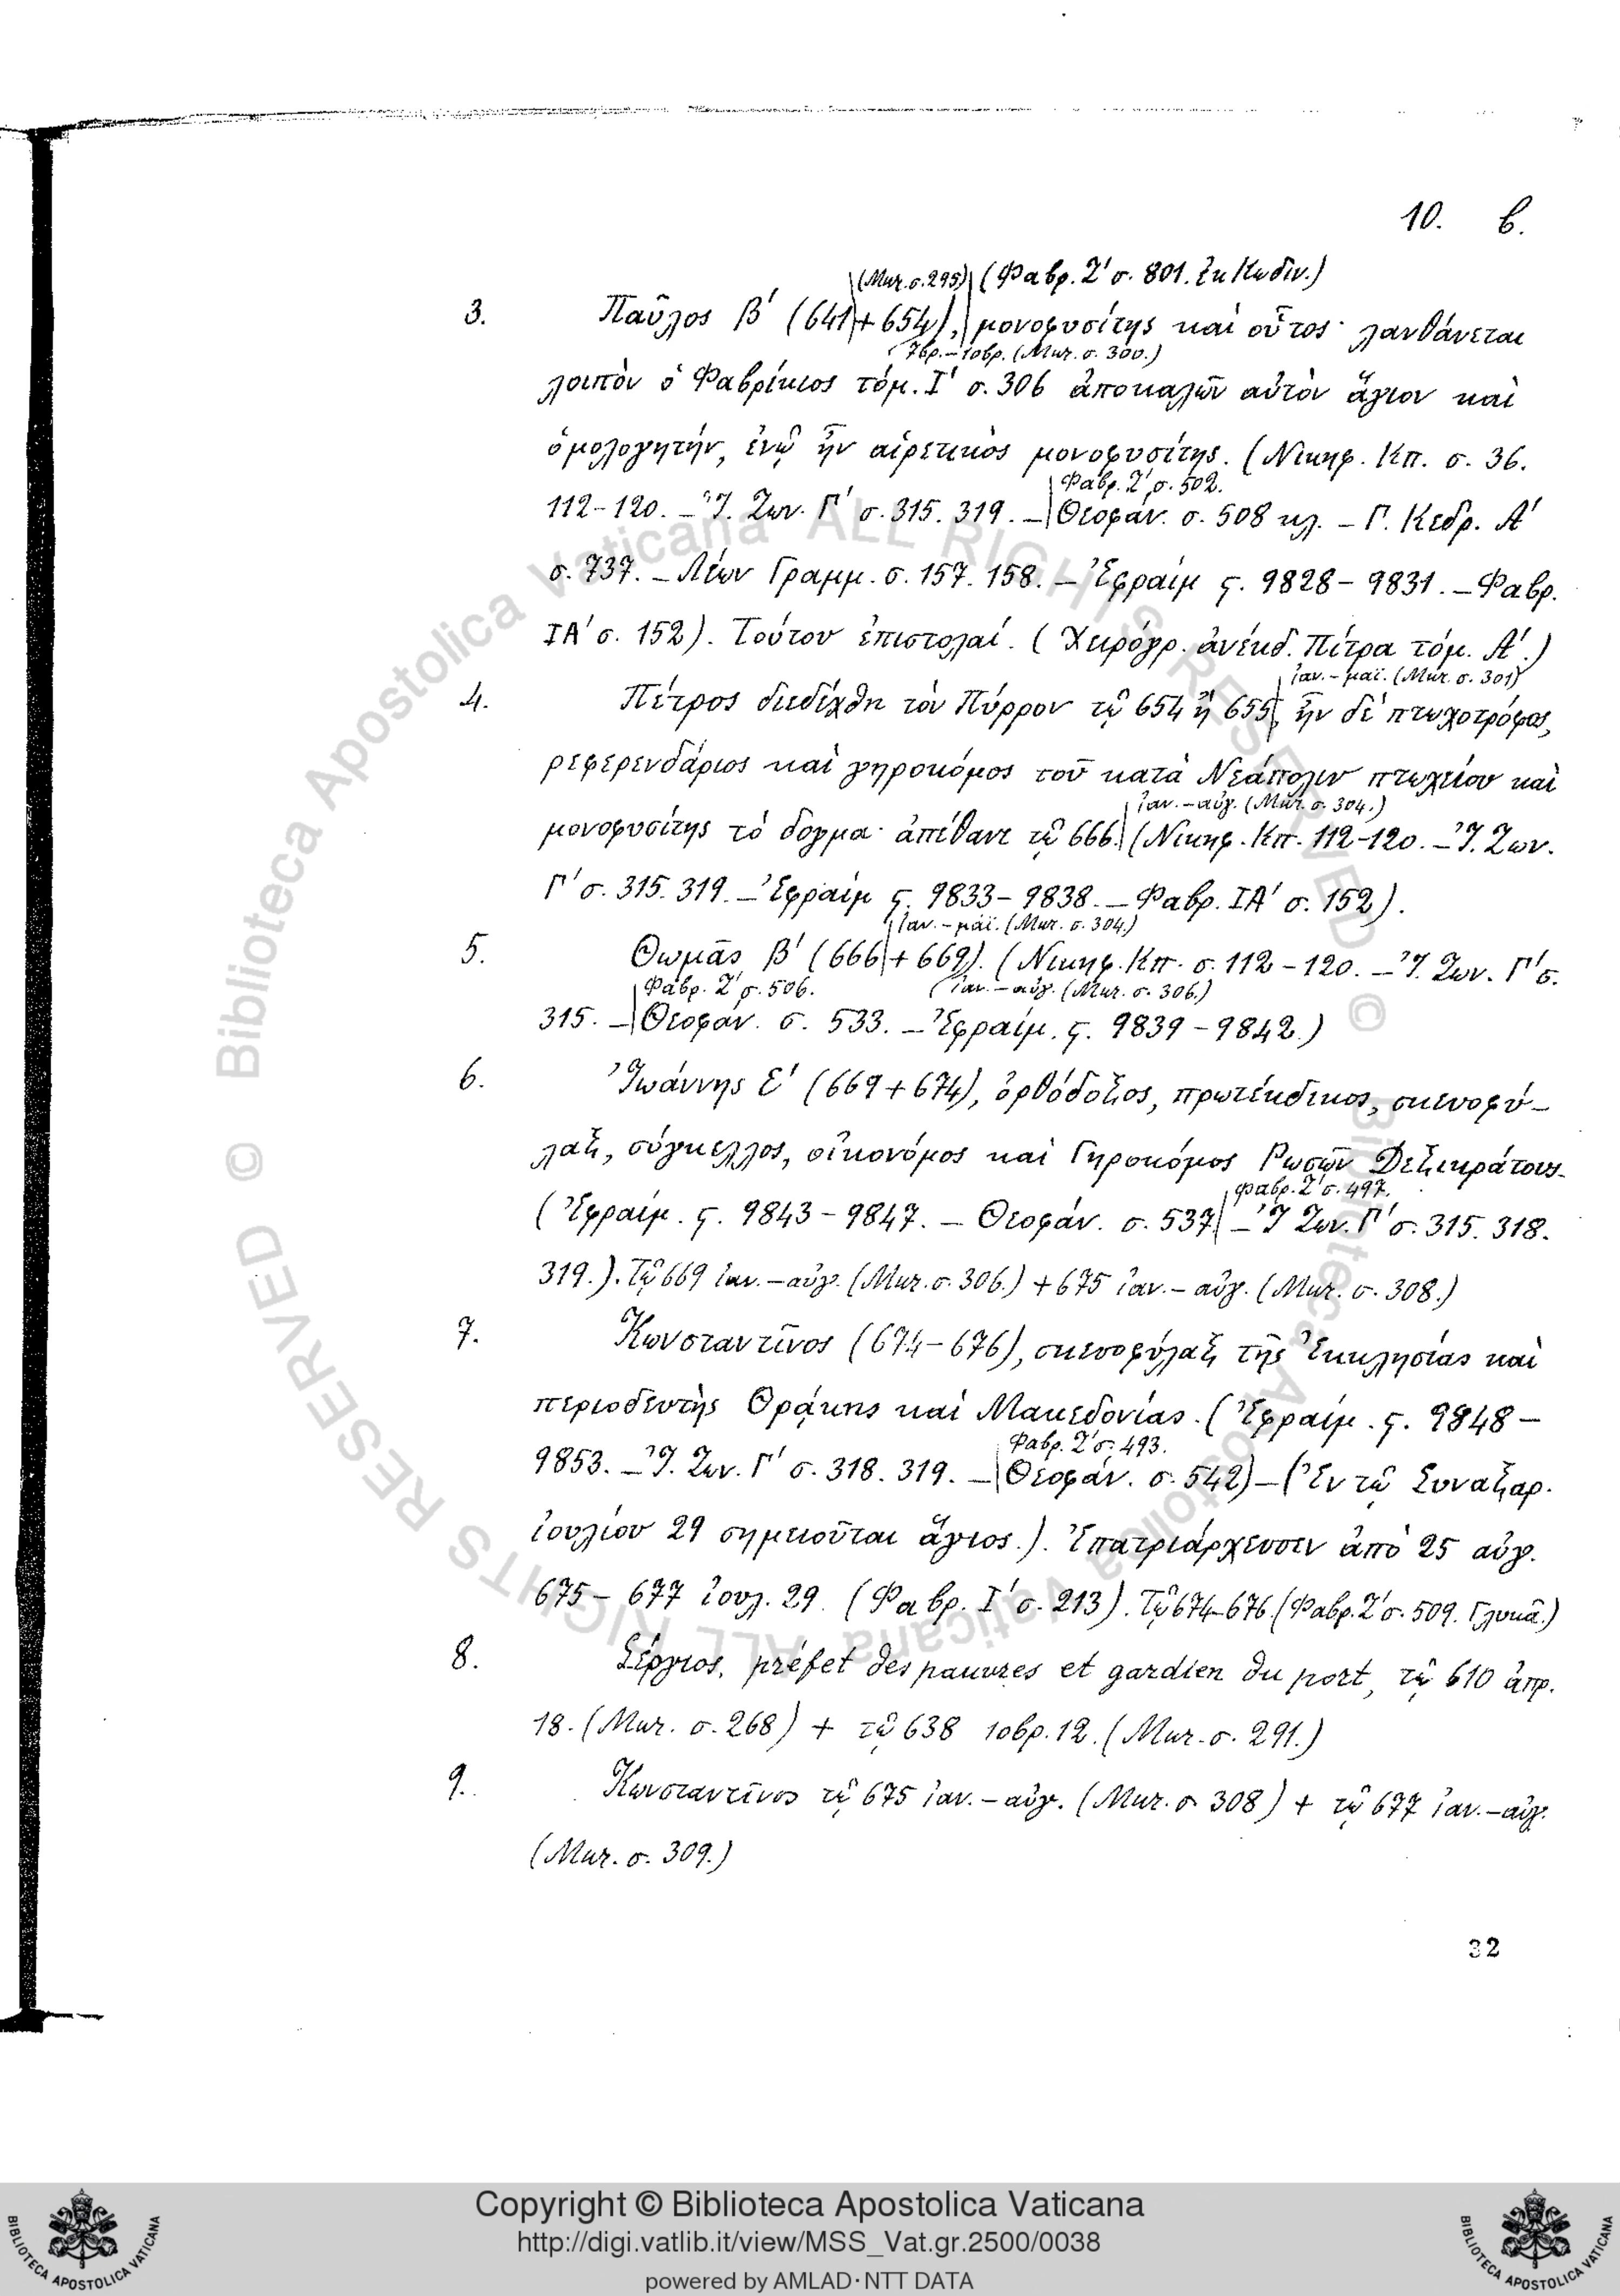 10. β.
(Μυρ. σ. 295) (Φαβρ. Ζ' σ. 801. ἐκ Κωδιν.)
3. Παῦλος Β' (641 + 654), μονοφυσίτης καὶ οὗτος· λανθάνεται
7βρ.–10βρ. (Μυρ. σ. 300.)
λοιπὸν ὁ Φαβρίκιος τόμ. Ι' σ. 306 ἀποκαλῶν αὐτὸν ἅγιον καὶ
ὁμολογητήν, ἐνῷ ἦν αἱρετικὸς μονοφυσίτης. (Νικηφ. Κπ. σ. 36.
Φαβρ. Ζ' σ. 502.
112–120. – Ἰ. Ζων. Γ' σ. 315. 319. – Θεοφάν. σ. 508 κλ. – Γ. Κεδρ. Α'
σ. 737. – Λέων Γραμμ. σ. 157. 158. – Ἐφραίμ ς. 9828 – 9831. – Φαβρ.
ΙΑ' σ. 152). Τούτου ἐπιστολαί. (Χειρόγρ. ἀνέκδ. Πίτρα τόμ. Α'.)
ἰαν. – μαΐ. (Μυρ. σ. 301)
4. Πέτρος διεδέχθη τὸν Πύρρον τῷ 654 ἢ 655, ἦν δὲ πτωχοτρόφος,
ρεφερενδάριος καὶ γηροκόμος τοῦ κατὰ Νεάπολιν πτωχείου καὶ
ἰαν. – αὐγ. (Μυρ. σ. 304.)
μονοφυσίτης τὸ δόγμα· ἀπέθανε τῷ 666. (Νικηφ. Κπ. 112–120. – Ἰ. Ζων.
Γ' σ. 315. 319. – Ἐφραίμ ς. 9833 – 9838. – Φαβρ. ΙΑ' σ. 152).
ἰαν. – μαΐ. (Μυρ. σ. 304.)
5. Θωμᾶς Β' (666 + 669). (Νικηφ. Κπ. σ. 112 – 120. – Ἰ. Ζων. Γ' σ.
Φαβρ. Ζ' σ. 506. ἰαν. – αὐγ. (Μυρ. σ. 306.)
315. – Θεοφάν. σ. 533. – Ἐφραίμ. ς. 9839 – 9842.)
6. Ἰωάννης Ε' (669 + 674), ὀρθόδοξος, πρωτέκδικος, σκευοφύ–
λαξ, σύγκελλος, οἰκονόμος καὶ Γηροκόμος Ρωσῶν Δεξικράτους.
Φαβρ. Ζ' σ. 497.
(Ἐφραίμ. ς. 9843 – 9847. – Θεοφάν. σ. 537. – Ἰ Ζων. Γ' σ. 315. 318.
319.). Τῷ 669 ἰαν. – αὐγ. (Μυρ. σ. 306.) + 675 ἰαν. – αὐγ. (Μυρ. σ. 308.)
7. Κωνσταντῖνος (674 – 676), σκευοφύλαξ τῆς Ἐκκλησίας καὶ
περιοδευτὴς Θρᾴκης καὶ Μακεδονίας. (Ἐφραίμ. ς. 9848 –
Φαβρ. Ζ' σ. 493.
9853. – Ἰ. Ζων. Γ' σ. 318. 319. – Θεοφάν. σ. 542) – (Ἐν τῷ Συναξαρ.
ἰουλίου 29 σημειοῦται ἅγιος.). Ἐπατριάρχευσεν ἀπὸ 25 αὐγ.
675 – 677 ἰουλ. 29. (Φαβρ. Ι' σ. 213). Τῷ 674–676. (Φαβρ. Ζ' σ. 509. Γλυκᾶ.)
8. Σέργιος, préfet des pauvres et gardien du port, τῷ 610 ἀπρ.
18. (Μυρ. σ. 268) + τῷ 638 10βρ. 12. (Μυρ. σ. 291.)
9. Κωνσταντῖνος τῷ 675 ἰαν. – αὐγ. (Μυρ. σ 308) + τῷ 677 ἰαν. – αὐγ.
(Μυρ. σ. 309.)
32
© Biblioteca Apostolica Vaticana ALL RIGHTS RESERVED
© Biblioteca Apostolica Vaticana ALL RIGHTS RESERVED
Copyright © Biblioteca Apostolica Vaticana
http://digi.vatlib.it/view/MSS_Vat.gr.2500/0038
powered by AMLAD·NTT DATA
BIBLIOTECA APOSTOLICA VATICANA
BIBLIOTECA APOSTOLICA VATICANA